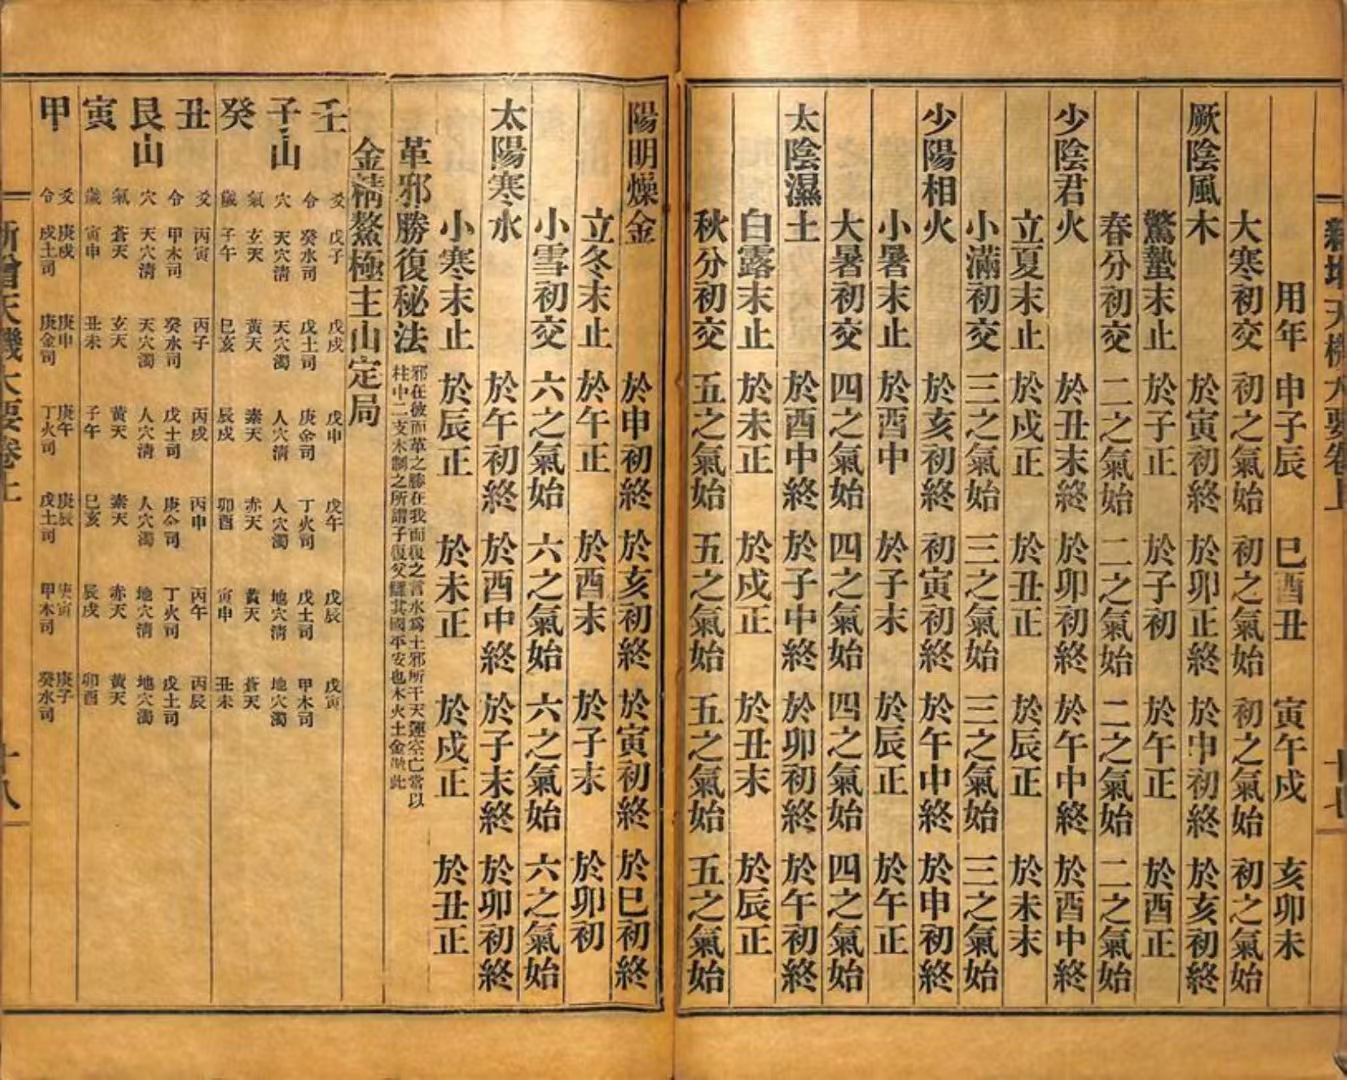 新增天機大要卷上
十七
用年 申子辰 巳酉丑 寅午戌 亥卯未
大寒初交 初之氣始 初之氣始 初之氣始 初之氣始
厥陰風木 於寅初終 於卯正終 於申初終 於亥初終
驚蟄末止 於子正 於子初 於午正 於酉正
春分初交 二之氣始 二之氣始 二之氣始 二之氣始
少陰君火 於丑末終 於卯初終 於午中終 於酉中終
立夏末止 於戌正 於丑正 於辰正 於未末
小滿初交 三之氣始 三之氣始 三之氣始 三之氣始
少陽相火 於亥初終 初寅初終 於午中終 於申初終
小暑末止 於酉中 於子末 於辰正 於午正
大暑初交 四之氣始 四之氣始 四之氣始 四之氣始
太陰濕土 於酉中終 於子中終 於卯初終 於午初終
白露末止 於未正 於戌正 於丑末 於辰正
秋分初交 五之氣始 五之氣始 五之氣始 五之氣始
陽明燥金 於申初終 於亥初終 於寅初終 於巳初終
立冬末止 於午正 於酉末 於子末 於卯初
小雪初交 六之氣始 六之氣始 六之氣始 六之氣始
太陽寒水 於午初終 於酉中終 於子末終 於卯初終
小寒末止 於辰正 於未正 於戌正 於丑正
革邪勝復秘法 邪在彼而革之勝在我而復之言水爲土邪所干天運空亡當以
柱中二支木制之所謂子復父讎其國平安也木火土金倣此
金精鰲極主山定局
壬 爻 戊子 戊戌 戊申 戊午 戊辰 戊寅
令 癸水司 戊土司 庚金司 丁火司 戊土司 甲木司
子山 穴 天穴清 天穴濁 人穴清 人穴濁 地穴清 地穴濁
氣 玄天 黃天 素天 赤天 黃天 蒼天
癸 歲 子午 巳亥 辰戌 卯酉 寅申 丑未
丑 爻 丙寅 丙子 丙戌 丙申 丙午 丙辰
令 甲木司 癸水司 戊土司 庚金司 丁火司 戊土司
艮山 穴 天穴清 天穴濁 人穴清 人穴濁 地穴清 地穴濁
氣 蒼天 玄天 黃天 素天 赤天 黃天
寅 歲 寅申 丑未 子午 巳亥 辰戌 卯酉
甲 爻 庚戌 庚申 庚午 庚辰 庚寅 庚子
令 戊土司 庚金司 丁火司 戊土司 甲木司 癸水司
新增天機大要卷上
十八